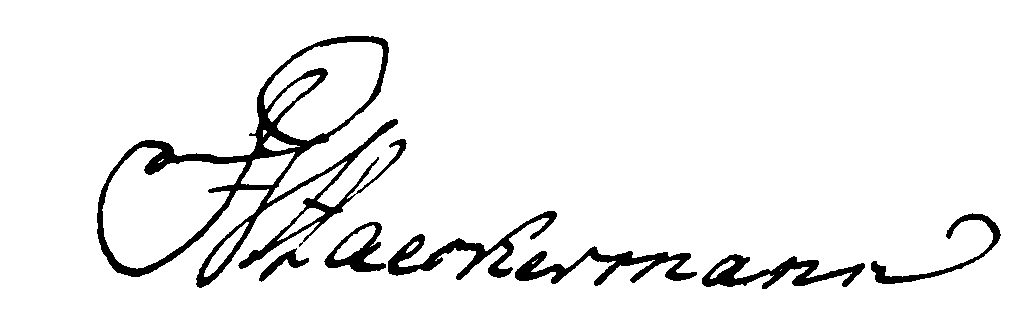 F. Haeckermann